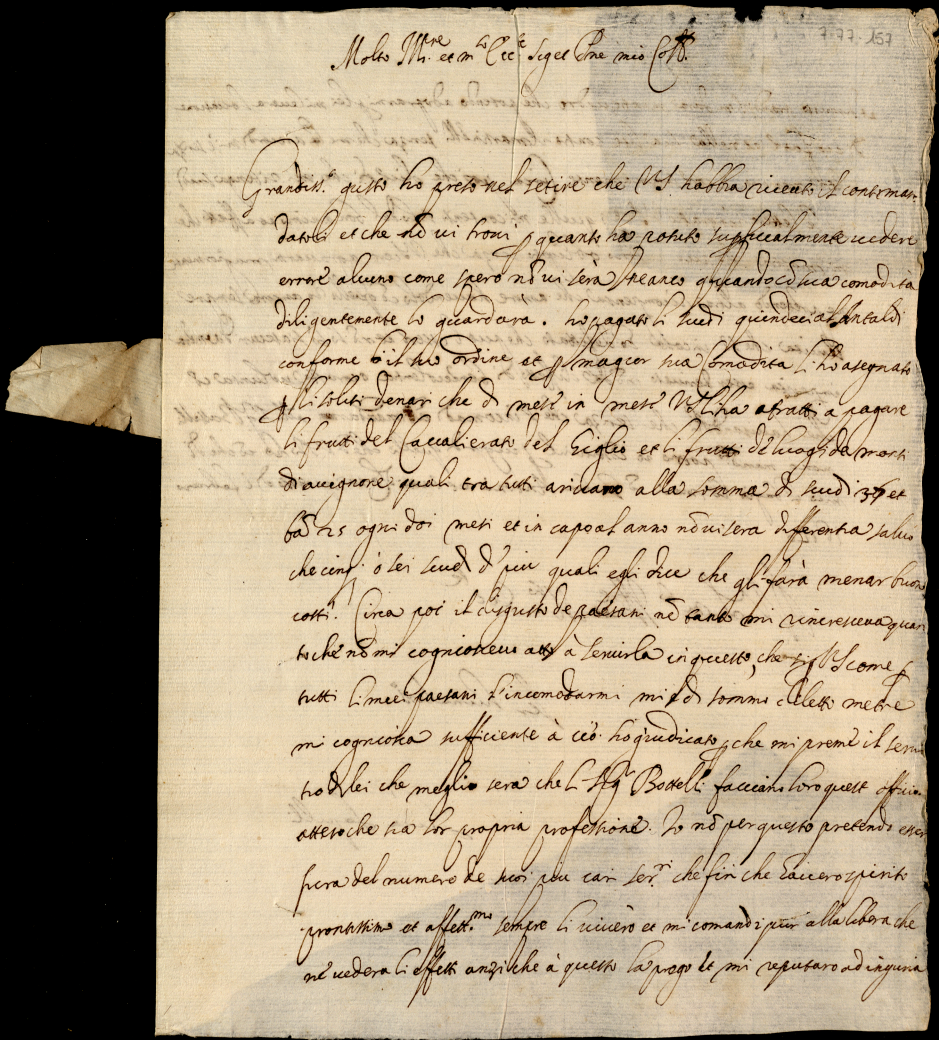 7.77.157
Molto Ill.re et m.to Ecc.te Sig.r et Pne mio Coss.mo
Grandiss.o gusto ho preso nel setire che VS habbia riceuto il conto man-
datoli et che nō ui troui p quanto ha potuto supficialmente uedere
errore alcuno come spero nō ui serà ne anco quando cō sua comodita
diligentemente lo guardara. ho pagato li scudi quindeci al Antaldi
conforme il suo ordine et p magior sua Comodita li ho asegnato
p li soliti denari che di mese in mese VS li ha a fratti a pagare
li frutti del Caualierato del Giglio et li frutti de luoghi de monti
di auignone quali tra tutti ariuano alla somma di scudi 36 et
ba 25 ogni doi mesi et in capo al anno nō ui sera differentia saluo
che cinq. o sei scudi di piu quali egli dice che gli farà menar buoni
costi. Circa poi il disgusto de paesani nō tanto mi rincresceua quan
to che nō mi cognosceuo atto à seruirla in questo, che si VS come p
tutti li miei paesani l'incomodarmi mi è di sommo diletto metre
mi cognosca sufficiente à ciò. ho giudicato p che mi preme il serui
tio di lei che meglio sera che li SSri Bottelli facciano loro quest officio
atteso che sia lor propria professione. Io nō per questo pretendo esser
fuora del numero de suoi piu cari ser.ri che fin che hauero spirito
prontissimo et affett.mo sempre li uiuero et mi comandi pur alla libera che
ne uedera li effetti anzi che à questo la prego et mi reputaro ad ingiuria